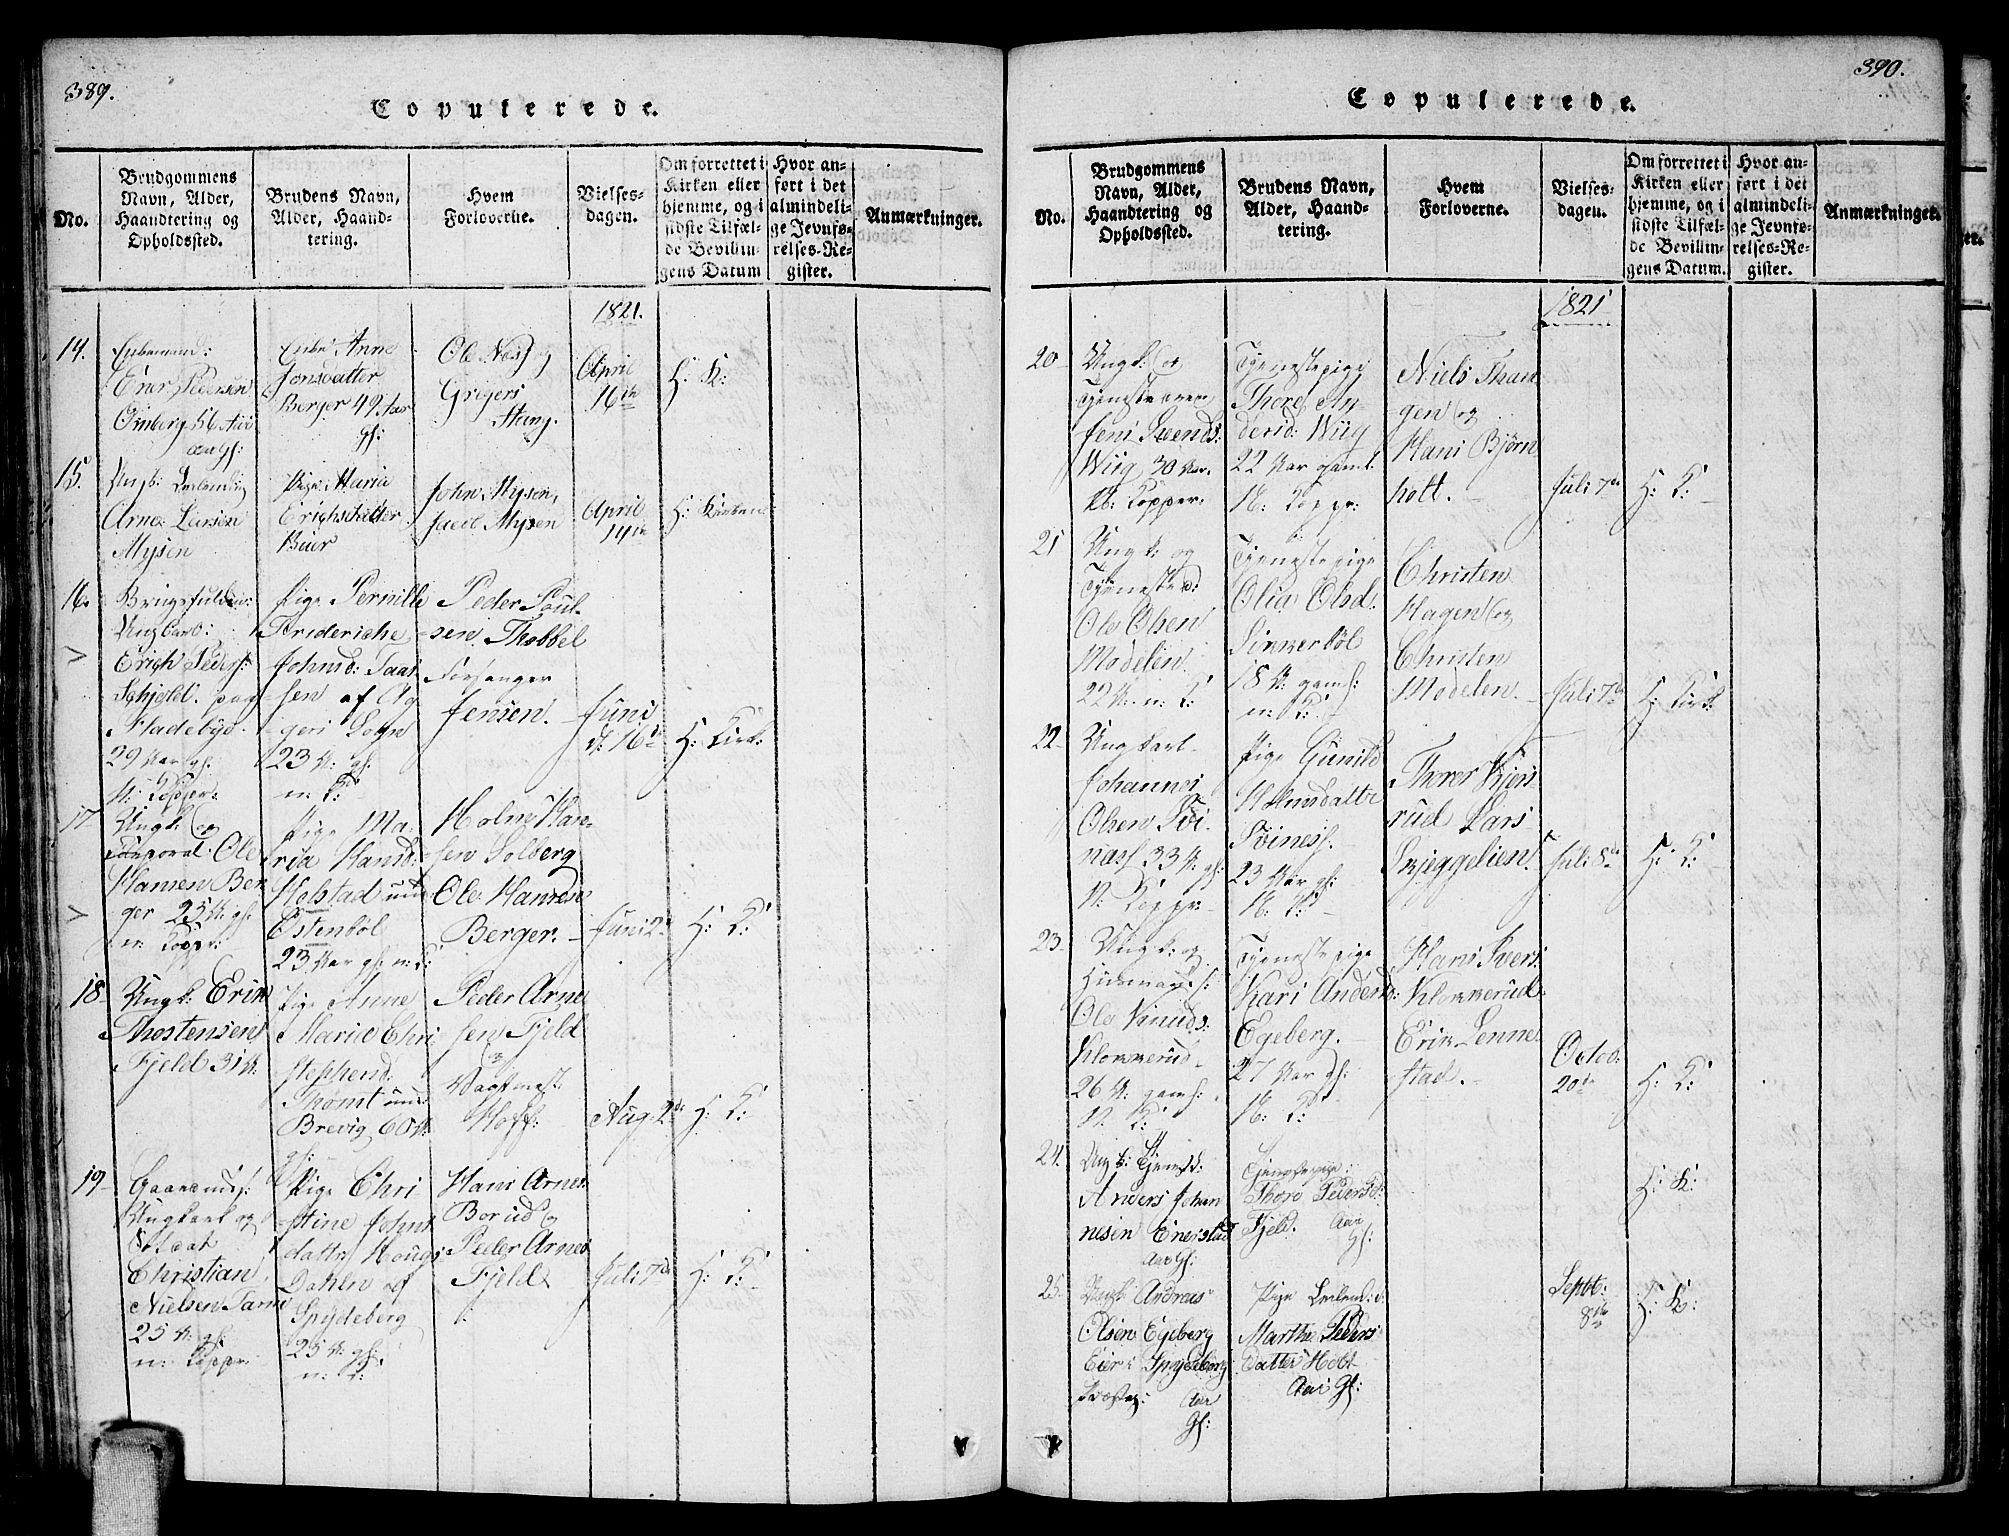 389.
Copulerede.
No.
Brudgommens
Navn, Alder,
Haandtering og
Opholdssted.
Brudens Navn,
Alder, Haand-
tering.
Hvem
Forloverne.
Vielses-
dagen.
Om forrettet i
Kirken eller
hjemme, og i
sidste Tilfæl-
de Bevillin-
gens Datum
Hvor an-
ført i det
almindeli-
ge Jevnfø-
relses-Re-
gister.
Anmærkninger.
1821.
14.
Enkemand:
Ener Pedersen
Ornberg 56 Aar
Enke Anne
Jonsdatter
Berger 49 Aar
gl:
Ole Næss og
Gregers
Stang.
April
16de
H: K:
15.
Ungk:
Arne Larsen
Mysen
Pige Maria
Erichsdatter
Beier
John Mysen,
Jacob Mysen
April
14de
H: Kirken
16.
Ungkarl:
Erich Peders:
Schjold. paa
Fladebye.
29 Aar gl.
N: Kopper:
Pige Pernille
Frideriche
Johnsd: Taas
sen af Ag
geri Sogn
23 A: gl.
n: K:
Peder Poul-
sen Thobbel
Forsanger
Jensen.
Juni
d: 16de
H: Kirk:
17
Ungk: og
Corporal: Ole
Hansen Ber
ger 25 A: gl:
n: Kopp:
Pige Ma-
ria Hansd:
Holstad und
Østenbøl
23 Aar gl: n: K:
Holm Han-
sen Solberg
Ole Hansen
Berger.
Juni 2de
H: K:
18
Ungk: Erik
Thostensen
Fjeld 31 A:
Pige Anne
Maria Chri
stephersd:
Thømt und:
Brevig 60 A:
gl:
Peder Arne
sen Fjeld
og
Vagtmest:
Hoff:
Aug: 2de
H: K:
19
Gaardmd:
Ungkarl og
Soldat
Christian
Nielsen Tarn
25 A: gl:
n: Kopper
Pige Chri
stine Johns
datter Hougs
Dahlen af
Spydeberg
25 A: gl:
n: K:
Hans Arnes
Borud og
Peder Arnes
Fjeld
Juli 7de
H: K:
390.
Copulerede.
No.
Brudgommens
Navn, Alder,
Haandtering og
Opholdssted.
Brudens Navn,
Alder, Haand-
tering.
Hvem
Forloverne.
Vielses-
dagen.
Om forrettet i
Kirken eller
hjemme, og i
sidste Tilfæl-
de Bevillin-
gens Datum.
Hvor an-
ført i det
almindeli-
ge Jevnfø-
relses-Re-
gister.
Anmærkninger.
1821
20
Ungk: og
Jens Svends:
Wiig, 30 Aar.
N: Kopper:
Tjenestepige
Thore An-
dersd: Wiig
22 Aar gaml.
N: Kopp:
Niels Than
gen og
Hans Bjørn
holt.
Juli 7de
H: K:
21
Ungk: og
Ole Olsen
Modelen
22 A: n: K:
Tjenestepige
Olia Olsd:
Sikkerbøl
18 A: gaml:
n: K:
Christen
Hagen og
Christen
Modelen
Juli 7de
H: Kirk:
22
Ungkarl
Johannes
Olsen Svi-
næss 33 A: gl:
N: Kopp:
Pige Gunild
Holmsdatte
Sviness.
23 Aar gl:
N: K:
Thorer Kjers
rud Lars
Skjeggelien
Juli 8de
H: K:
23
Ungk: og
Huusmand:
Ole Knuds:
Klokkerud
26 A: gaml:
N: K:
Tjenestepige
Kari Andersd:
Egeberg.
27 Aar gl:
N: K:
Hans Ivers:
Klokkerud
Erik Lenne
stad.
Octob:
20de
H: K:
24
Ungk: Tjenestk:
Anders Johan
nesen Enerstad
Aar Gl:
Tjenestepige:
Thore Pedersd:
Fjeld. Aar
Gl:
H: K:
25
Ungk: Andreas
Olsen Egeberg
Eier i Spydeberg
Præsteg: Aar
Gl:
Pige
Marthe Peders
datter Holt
Aar Gl:
Septb:
8de
H: K: